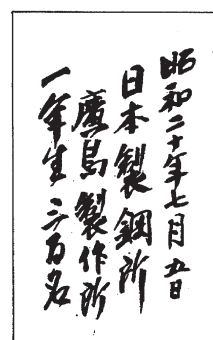 昭和二十年七月五日
日本製鋼所
廣島製作所
一年生三百名